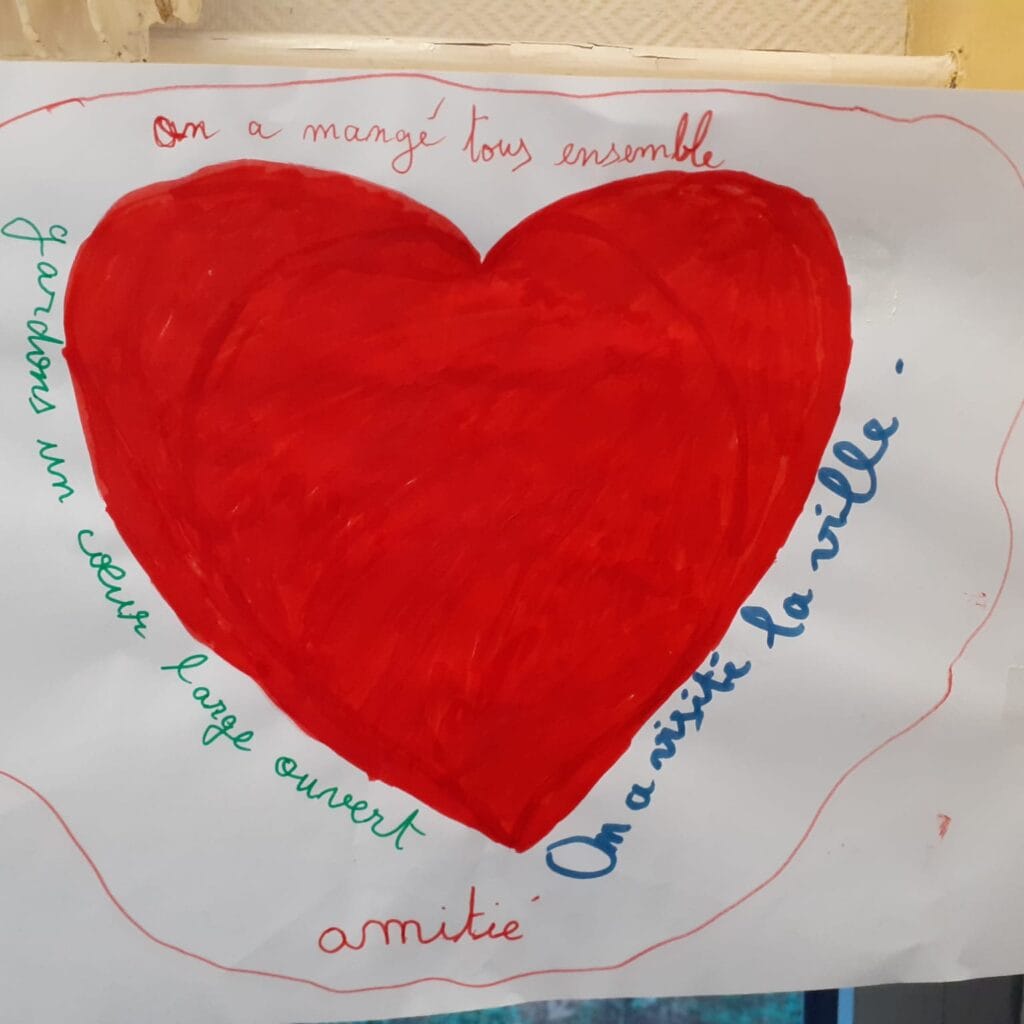 on a mangé tous ensemble
gardons un coeur large ouvert
On a visité la ville.
amitié